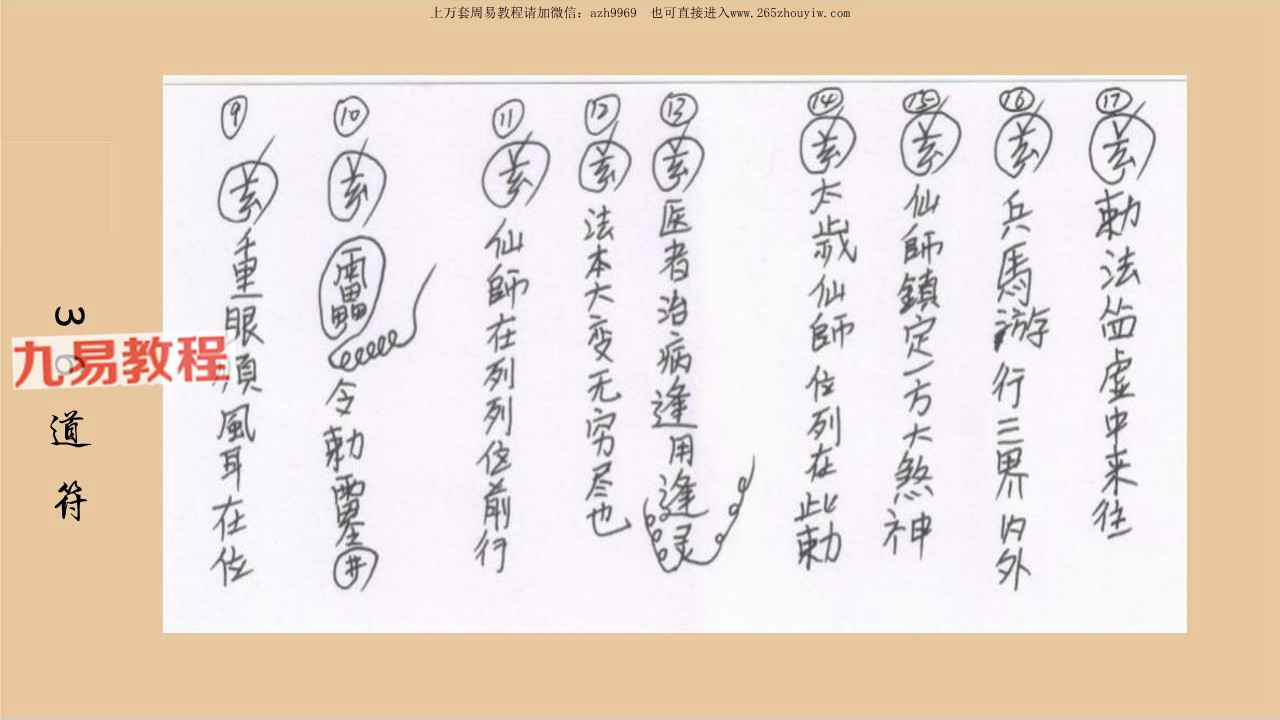 上万套周易教程请加微信：azh9969 也可直接进入www.265zhouyiw.com
⑨ 重眼順風耳在位
⑩ 令勅
⑪ 仙師在列列位前行
⑫ 法本大变无穷尽也
⑬ 医者治病逢用逢灵
⑭ 太歲仙師位列在此勅
⑮ 仙師鎮定一方大煞神
⑯ 兵馬游行三界内外
⑰ 勅法 虚中来往
3 道符
九易教程